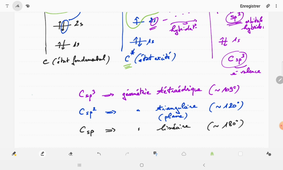 Enregistrer
1s
C (état fondamental)
1s
C* (état excité)
1s
Csp³
Csp³ ⇒ géométrie tétraédrique (~109°)
Csp² ⇒ " triangulaire (~120°)
(plane)
Csp ⇒ " linéaire (~180°)